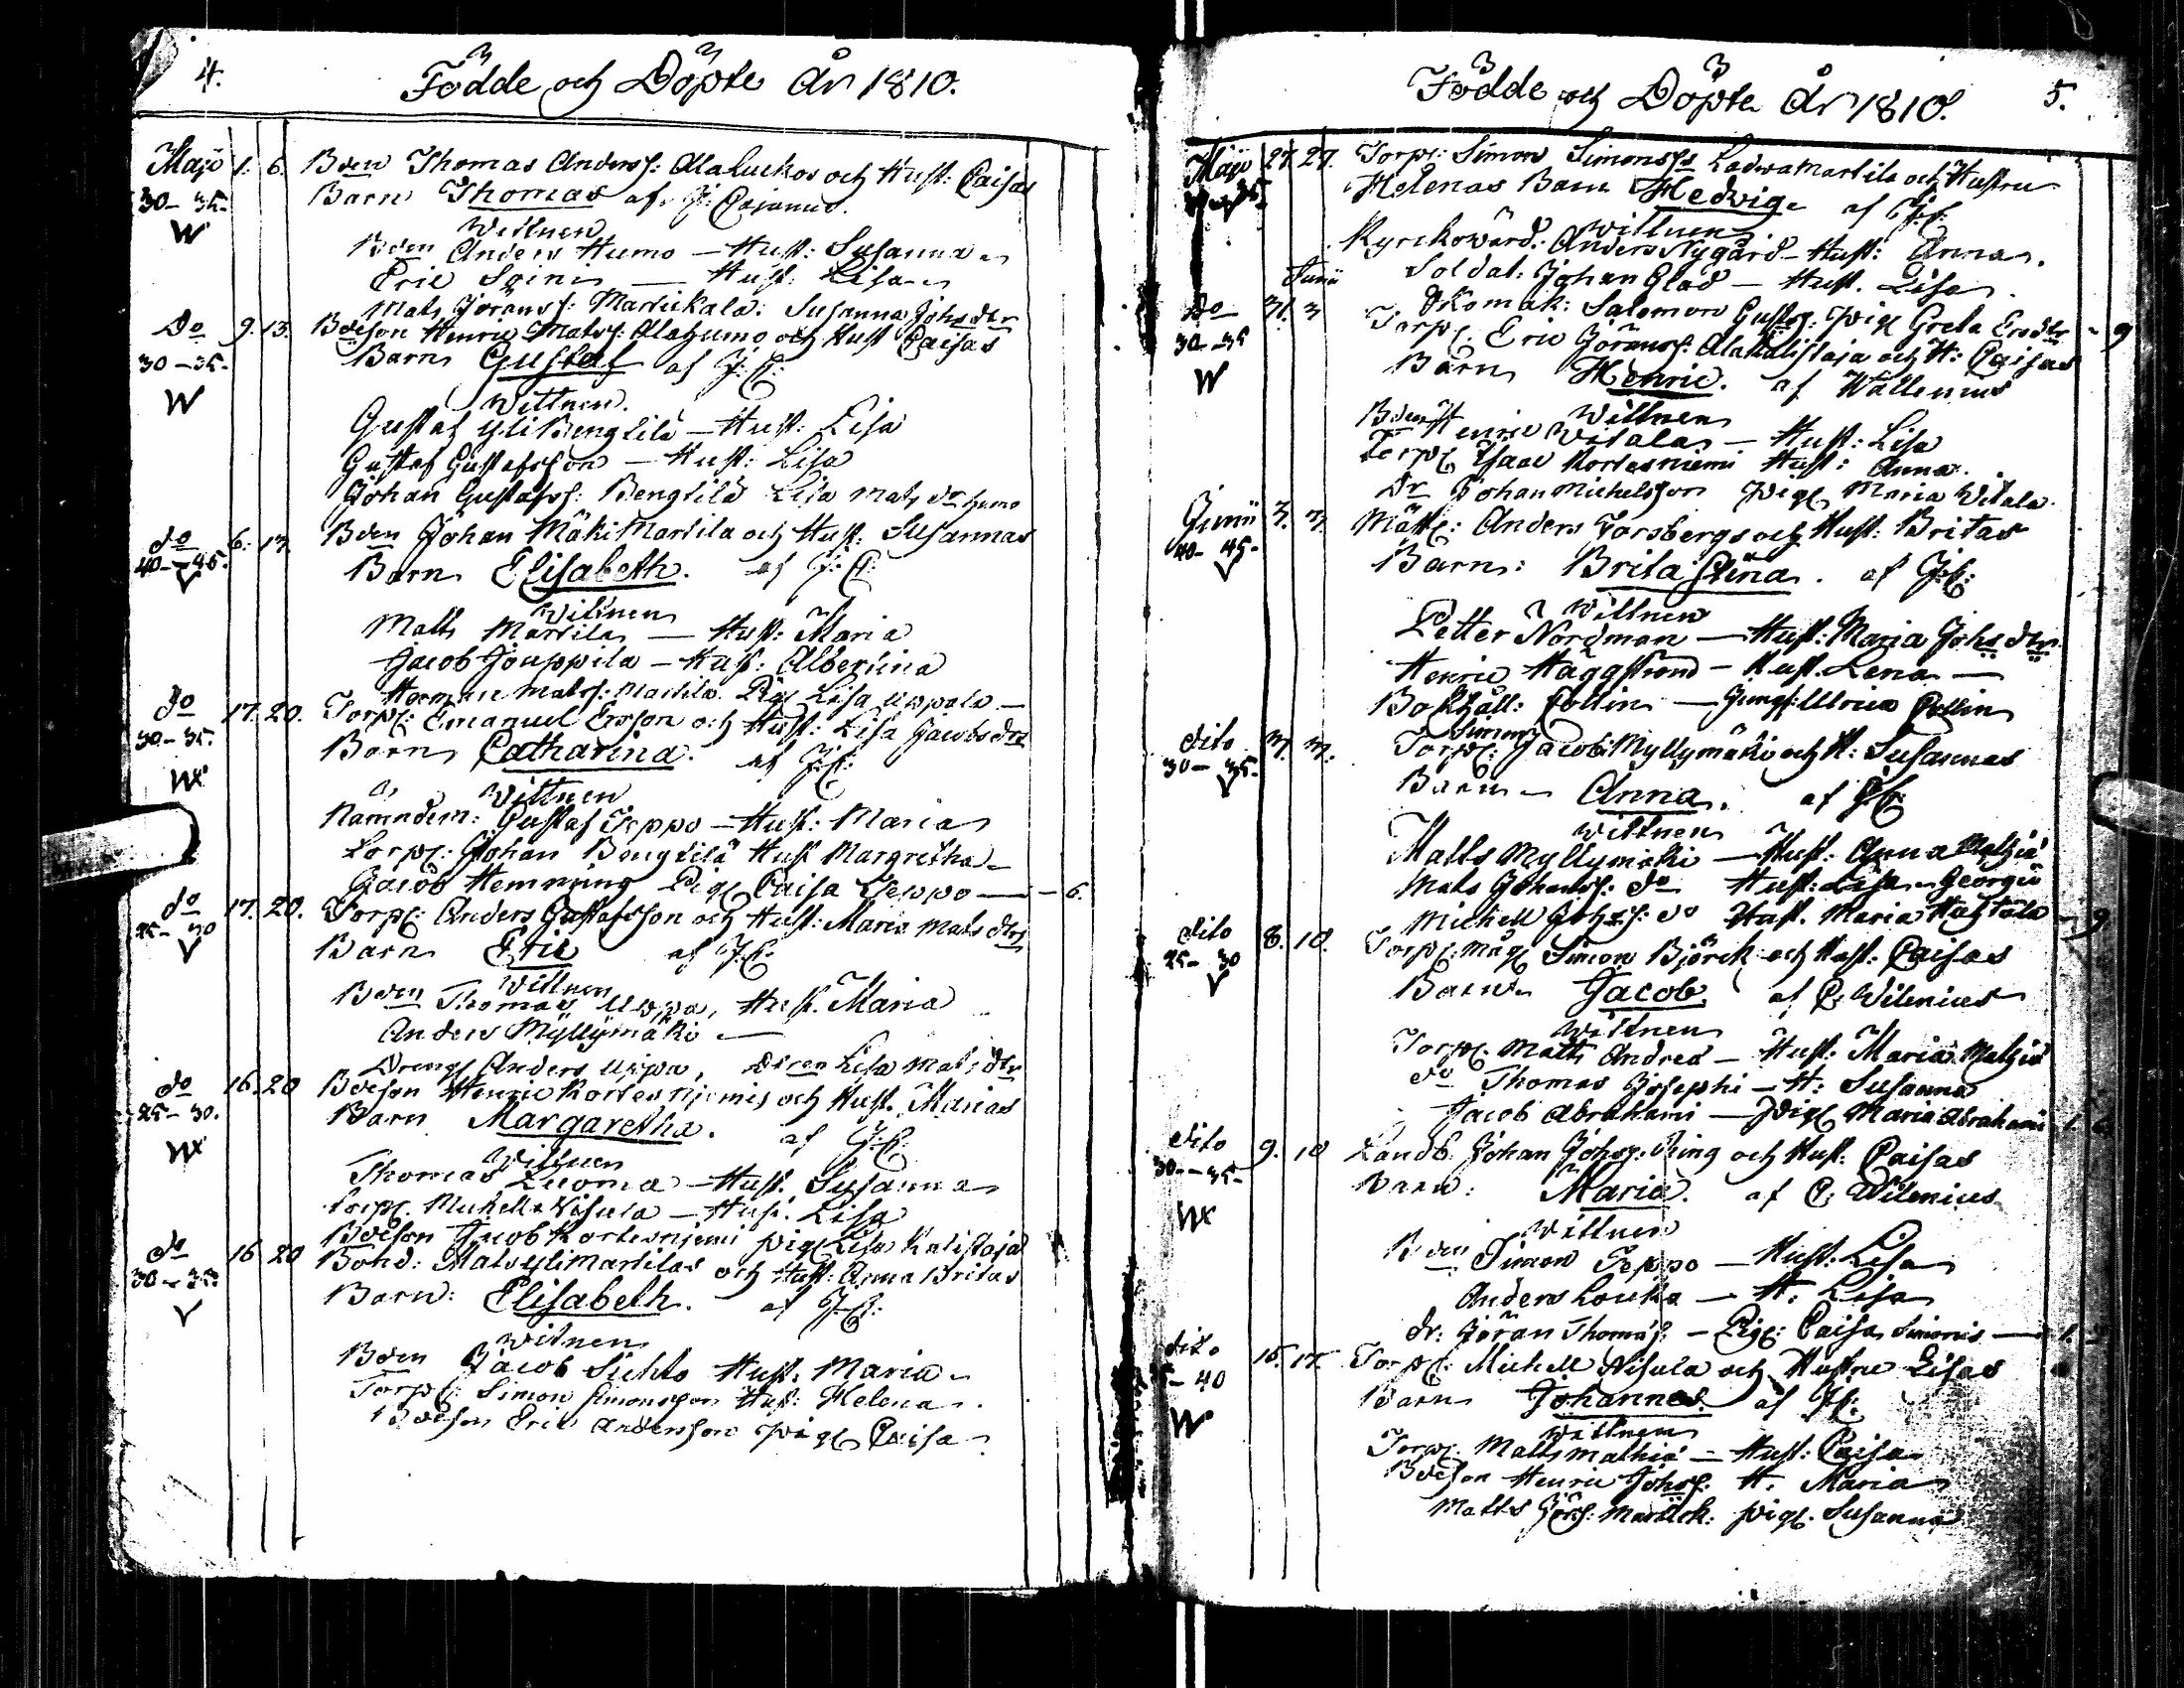 4.
Födde och Döpte År 1810.
Majo 1. 6. Bden Thomas Anderss: Alaluckos och Hust: Caisas
30-35. Barn Thomas af J: Cajanus.
W
Wittnen
Bden Anders Humo — Hust: Susanna
Eric Soini — Hust: Lisa
Mats Jöranss: Martickala: Susanna Johsdtr
Do 9. 13. Bdeson Henric Matss: Alahumo och Hust Caisas
30-35. Barn Gustaf af J: C:
W
Wittnen.
Gustaf YliBengtila — Hust: Lisa
Gustaf Gustafsson — Hust: Lisa
Johan Gustafss: Bengtilä Lisa Mats dr Humo
do 6. 13. Bden Johan MäkiMartila och Hust: Susannas
40-45. Barn Elisabeth. af J: C:
V
Wittnen
Matts Martila — Hust: Maria
Jacob Jouppila — Hust: Albertina
Herman Matss: Martila. Pig Lisa Uppala —
do 17. 20. Torp: Emanuel Ersson och Hust: Lisa Jacobsdtr
30-35. Barn Catharina. af J: C:
Wittnen
Nämndem: Gustaf Teppo — Hust: Maria
Torp: Johan Bengtilä Hust Margretha
Jacob Hemming Pig Caisa Teppo — 6.
do 17. 20. Torp: Anders Gustafsson och Hust: Maria Mats dtrs
25-30 Barn Eric af J: C:
V
Wittnen
Bden Thomas Uppa, Hust. Maria
Anders Myllymäki —
Dreng Anders Uppa, Lisa Mats dtr
do 16. 20 Bdeson Henric Kortesniemis och Hust. Marias
25-30. Barn Margaretha. af J: C:
Wittnen
Thomas Luoma — Hust. Susanna
Torp. Michell Nisula — Hust: Lisa
Bdeson Jacob Kortesniemi pig Lisa Kalistaja
do 16 20 Bond: Mats YliMartilas och Hust: Anna Britas
30-35 Barn: Elisabeth. af J: C:
V
Wittnen
Bden Jacob Suhto Hust. Maria
Torp: Simon Simonsson Hust: Helena
Bdeson Eric Andersson pig Caisa
Födde och Döpte År 1810. 5.
Majo 27. 27. Torp: Simon Simonss Ladwamartila och Hustru
Helenas Barn Hedvig. af J: C:
Wittnen
Kyrckowärd: Anders Nygård — Hust: Anna.
Soldat: Johan Glad — Hust. Lisa
Junii
Salomon Gustss: pig Greta Ersdtr
Do 31. 3 Torp. Eric Jöranss: Alakalistaja och H: Caisas 9
30-35 Barn Henric. af Wallenius
W
Wittnen
Bden Henric Witala — Hust: Lisa
Torp Isaac Kortesniemi Hust: Anna.
Dr Johan Michelsson pig Maria Witala
Junii 3. 3. Anders Forsbergs och Hust: Britas
40-45. Barn: Brita Stina. af J: C:
V
Wittnen
Petter Nordman — Hust: Maria Johs dtr
Henric Häggstrand — Hust. Lena —
Bokhåll: Collin — Jungf: Ulrica Collin
dito 3. 3. Torp: Jacob Simons Myllymäki och H: Susannas
30-35. Barn Anna. af J: C:
V
Wittnen
Matts Myllymäki — Hust: Anna Mathiä
Mats Johanss: do Hust: Lisa Georgii
Michell Johss: do Hust. Maria 9.
dito 8. 10. Torp: måg Simon Björck och Hust: Caisas
25-30 Barn Jacob. af C: Wilenius
V
Wittnen
Torp. Matts Andreä — Hust: Maria Mathiä
do Thomas Josephi — H: Susanna
Jacob Abrahami — pig Maria Abrahami 1.
dito 9. 10 Landb: Johan Johss: Ring och Hust: Caisas
30-35- Barn: Maria. af C: Wilenius
Wittnen
Bden Simon Teppo — Hust: Lisa
Anders Louko — H: Lisa
dr: Jöran Thomas: — Pig: Caisa Simonis — 1.
dito 15. 17. Torp: Michell Nisula och Hustru Lisas
- 40 Barn Johannes af J: C:
W
Wittnen
Torp. Matts Mathiä — Hust: Caisa
Bdeson Henric Johss: H. Maria
Matts Jörs: Martick: pig. Susanna